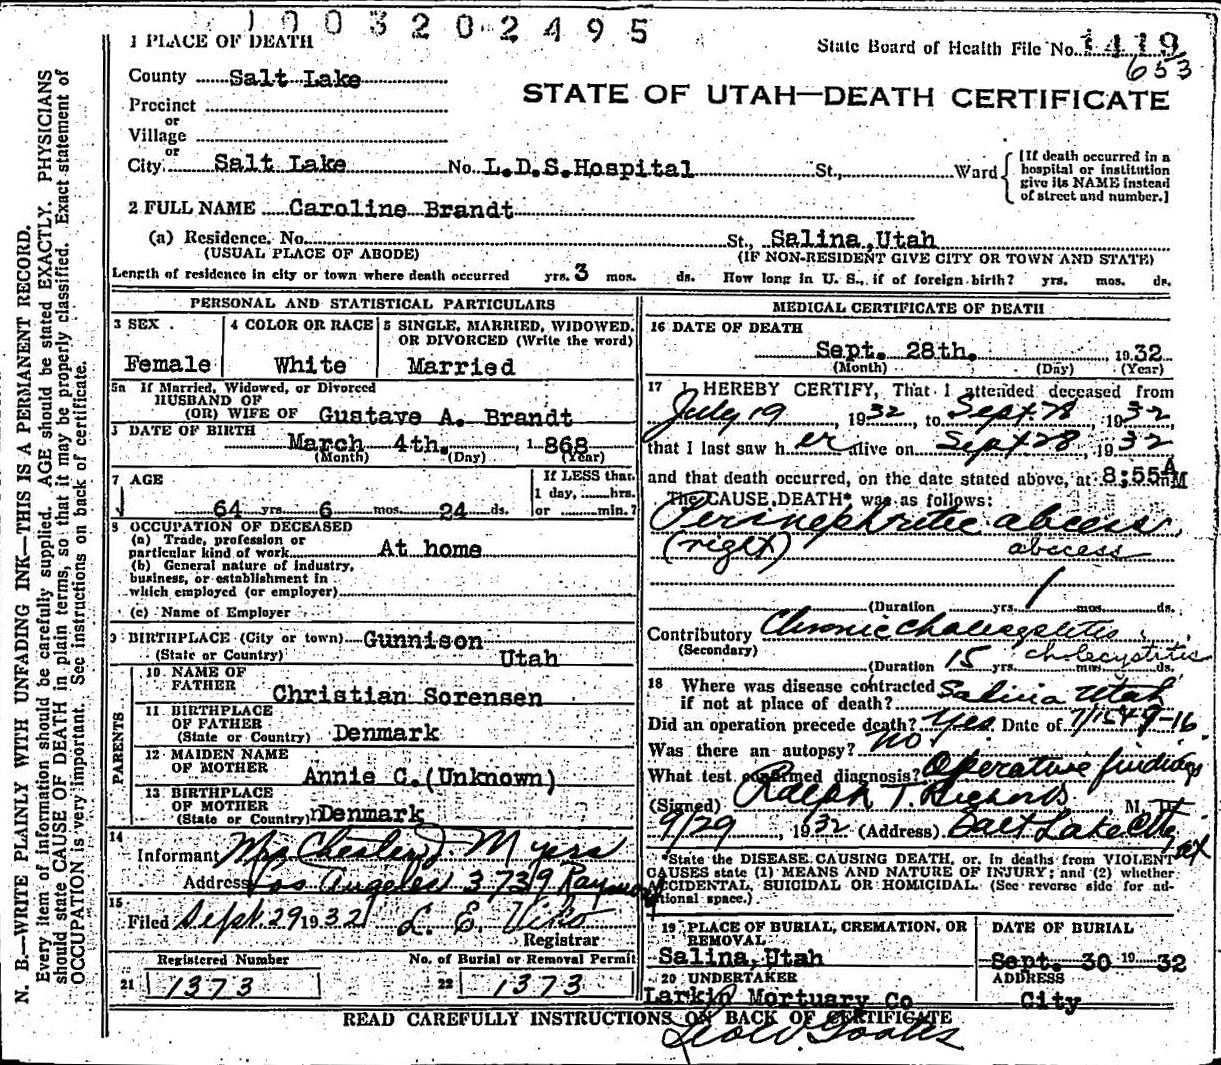 1003202495
1 PLACE OF DEATH
State Board of Health File No. 1419
653
County Salt Lake
STATE OF UTAH—DEATH CERTIFICATE
Precinct
or
Village
or
City Salt Lake No. L.D.S. Hospital St., Ward
[If death occurred in a
hospital or institution
give its NAME instead
of street and number.]
2 FULL NAME Caroline Brandt
(a) Residence. No. St., Salina, Utah
(USUAL PLACE OF ABODE) (IF NON-RESIDENT GIVE CITY OR TOWN AND STATE)
Length of residence in city or town where death occurred yrs. 3 mos. ds. How long in U. S., if of foreign birth? yrs. mos. ds.
PERSONAL AND STATISTICAL PARTICULARS
3 SEX
Female
4 COLOR OR RACE
White
5 SINGLE, MARRIED, WIDOWED,
OR DIVORCED (Write the word)
Married
5a If Married, Widowed, or Divorced
HUSBAND OF
(OR) WIFE OF Gustave A. Brandt
DATE OF BIRTH
March 4th. 1868
(Month) (Day) (Year)
7 AGE
64 yrs. 6 mos. 24 ds.
If LESS than
1 day, hrs.
or min.?
8 OCCUPATION OF DECEASED
(a) Trade, profession or
particular kind of work At home
(b) General nature of industry,
business, or establishment in
which employed (or employer)
(c) Name of Employer
9 BIRTHPLACE (City or town) Gunnison
(State or Country) Utah
PARENTS
10 NAME OF
FATHER Christian Sorensen
11 BIRTHPLACE
OF FATHER
(State or Country) Denmark
12 MAIDEN NAME
OF MOTHER Annie C. (Unknown)
13 BIRTHPLACE
OF MOTHER
(State or Country) Denmark
14
Informant Mrs Chester J Myers
Address Los Angeles 3739 Raymond
15
Filed Sept. 29 1932 L. E. Viko
Registrar
Registered Number
21 1373
No. of Burial or Removal Permit
22 1373
MEDICAL CERTIFICATE OF DEATH
16 DATE OF DEATH
Sept. 28th. 1932
(Month) (Day) (Year)
17 I HEREBY CERTIFY, That I attended deceased from
July 19 1932, to Sept 28 1932
that I last saw her alive on Sept 28, 1932
and that death occurred, on the date stated above, at 8:55 A M
The CAUSE DEATH* was as follows:
Perinephritic abcess
(right) abscess
(Duration yrs. 1 mos. ds.
Contributory Chronic
(Secondary) cholecystitis
(Duration 15 yrs. mos. ds.
18 Where was disease contracted
if not at place of death? Salina Utah
Did an operation precede death? Yes Date of
Was there an autopsy? No
What test confirmed diagnosis? Operative findings
(Signed) Ralph T. Richards, M. D.
9/29, 1932 (Address) Salt Lake City
*State the DISEASE CAUSING DEATH, or, in deaths from VIOLENT
CAUSES state (1) MEANS AND NATURE OF INJURY; and (2) whether
ACCIDENTAL, SUICIDAL OR HOMICIDAL. (See reverse side for additional space.)
19 PLACE OF BURIAL, CREMATION, OR
REMOVAL
Salina, Utah
DATE OF BURIAL
Sept. 30 1932
20 UNDERTAKER
Larkin Mortuary Co
ADDRESS
City
READ CAREFULLY INSTRUCTIONS ON BACK OF CERTIFICATE
N. B.—WRITE PLAINLY WITH UNFADING INK—THIS IS A PERMANENT RECORD.
Every item of information should be carefully supplied. AGE should be stated EXACTLY. PHYSICIANS
should state CAUSE OF DEATH in plain terms, so that it may be properly classified. Exact statement of
OCCUPATION is very important. See instructions on back of certificate.